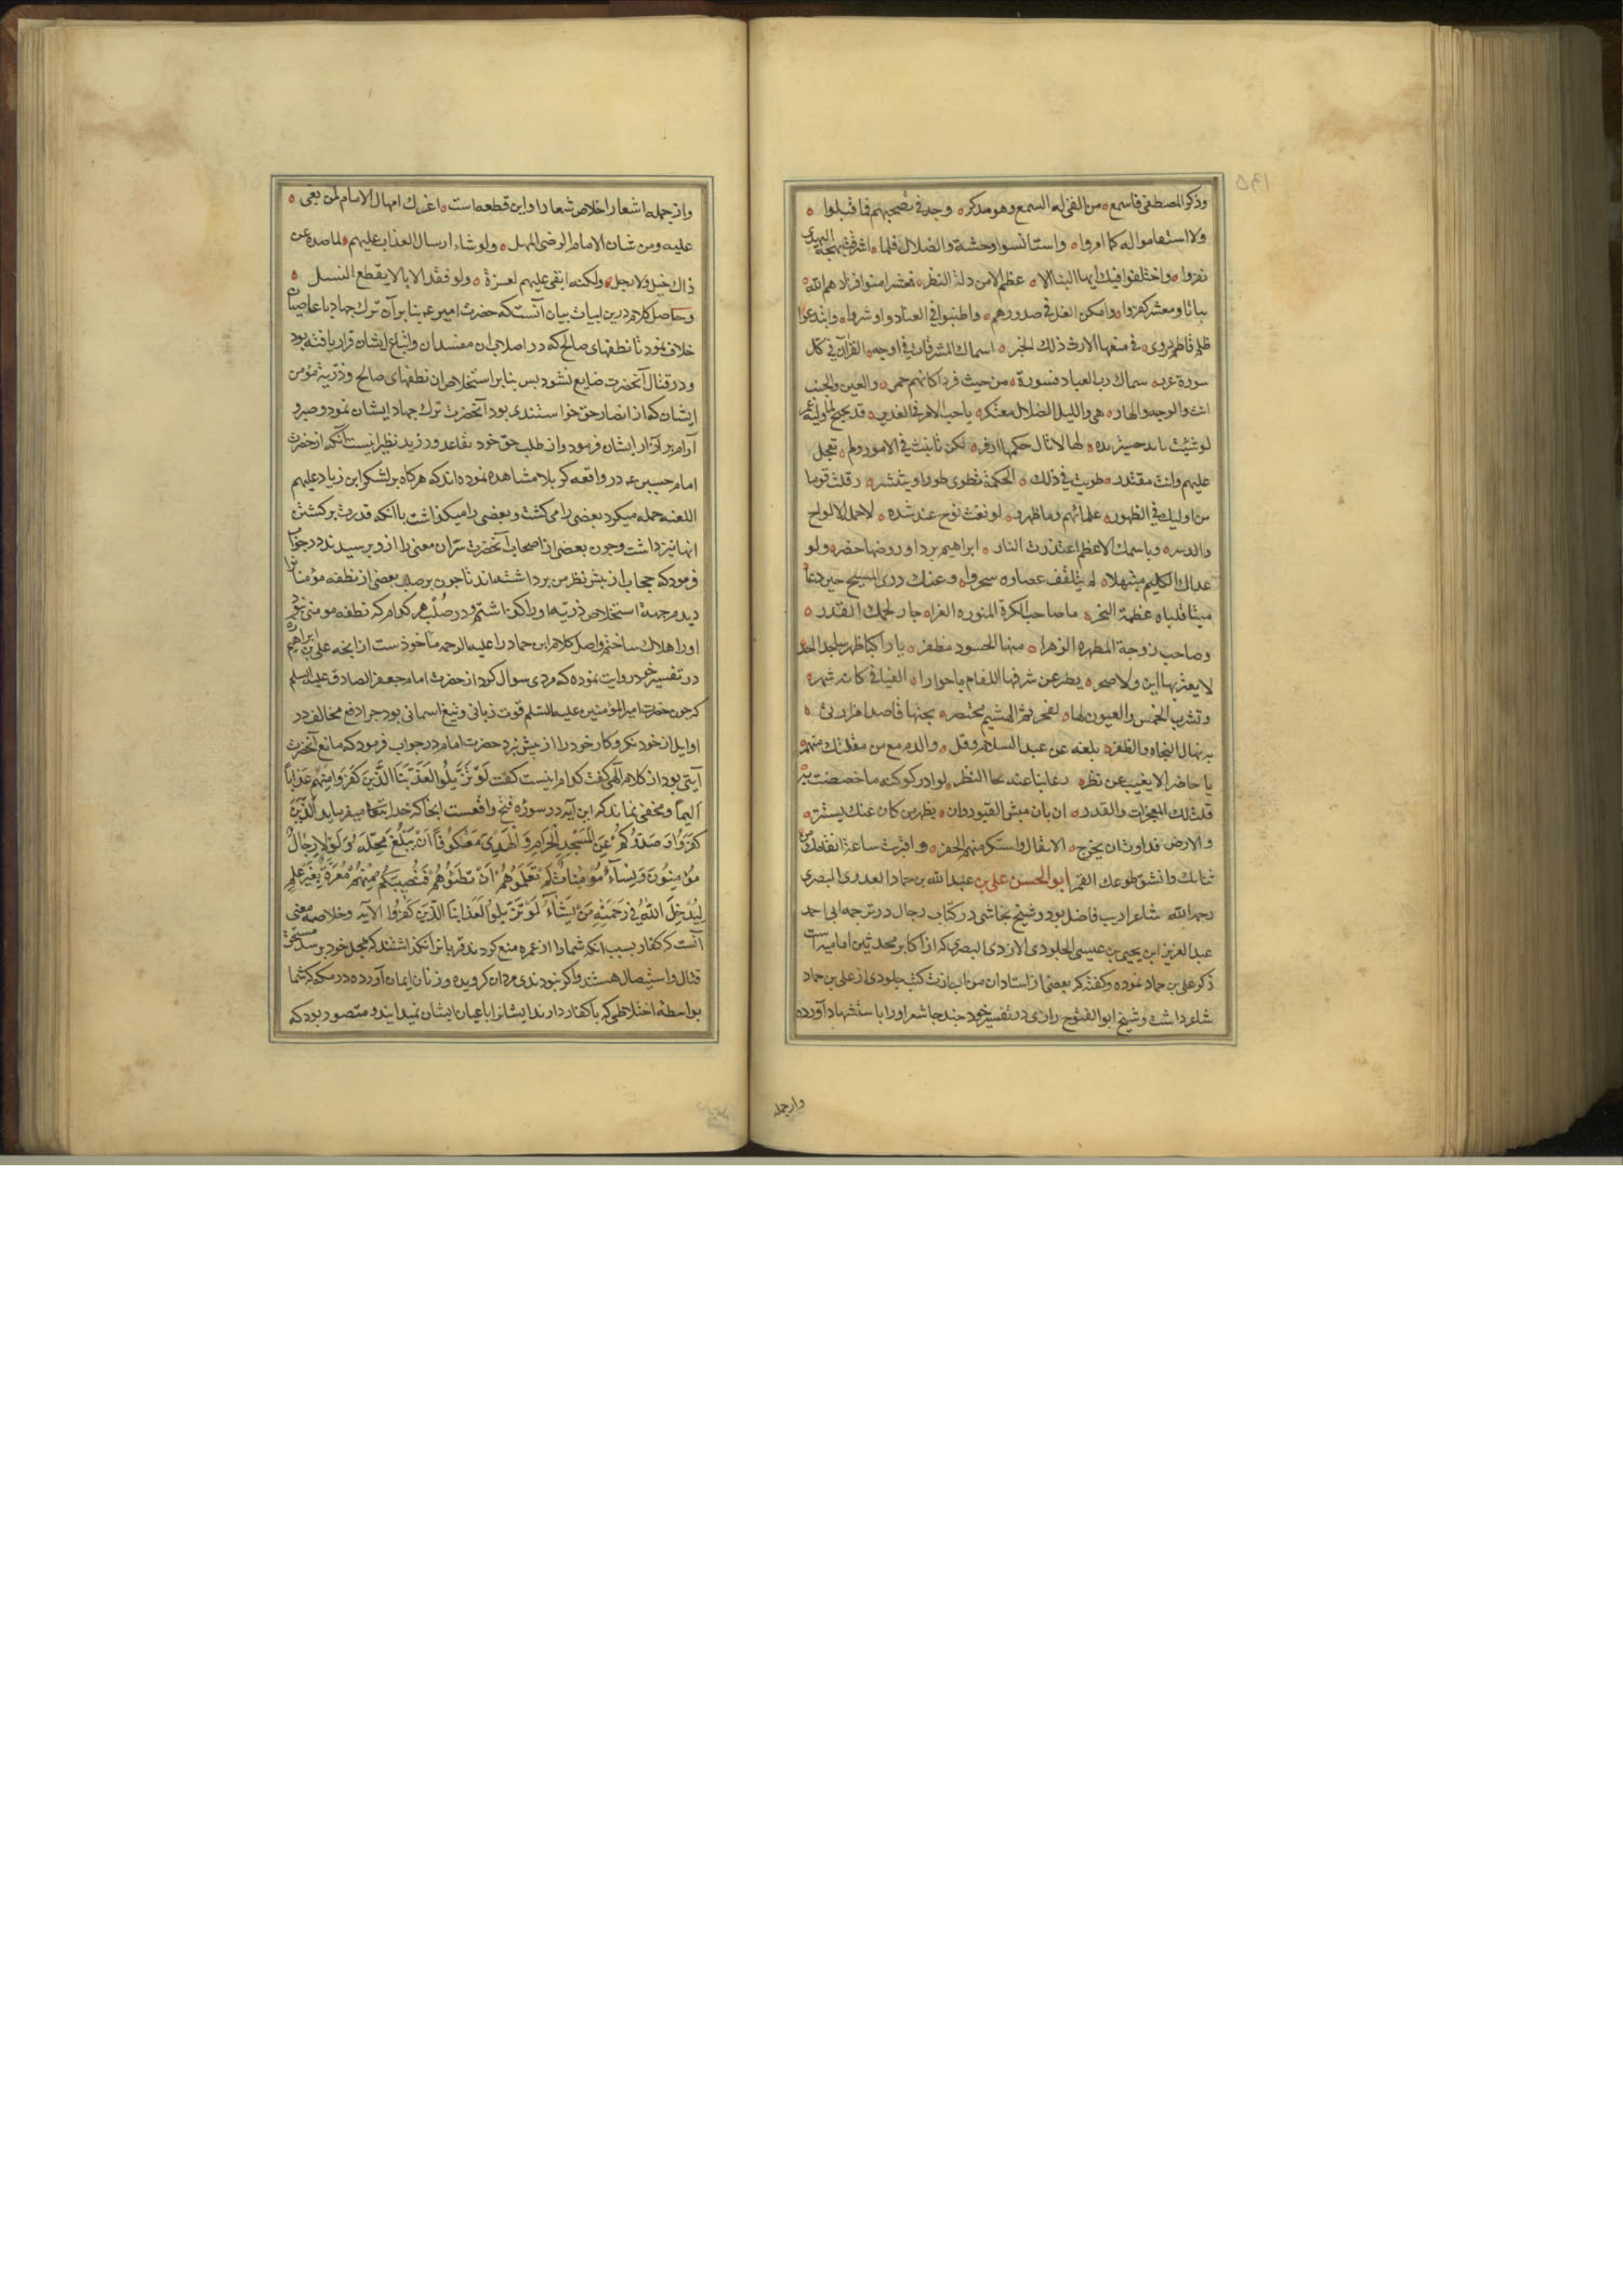 وذکر المصطفی فاسمع من القی له السمع وهو مدکر وجد فی نصحهم فما قبلوا
ولا استقاموا له کما امروا واستانسوا وحشة والضلال فلما اشرقت بهجة الهدی
نفروا واختلفوا فیك ایها النبأ الا عظم الا من دله النظر فمعشر امنوا فزادهم الله
بیانا ومعشر کفروا وامکن الغل فی صدورهم واطنبوا فی العناد واوشروا وابتدعوا
ظلم فاطم وروی فی منعها الارث ذلك الخبر اسماك المشرقات فی اوجه القرآن فی کل
سورة غرر سماك رب العباد قسورة من حیث فروا کانهم حمر والعین والجنب
انت والوجه والهاد وهم واللیل الضلال معتکر یا صاحب الامر فی الغدیر وقد بخبخ لما ولیته عمر
لو شئت ما مد حبتر یده لها ولا نال حکمها زفر لکن تانیت فی الامور ولم تعجل
علیهم وانت مقتدر طویت فی ذلك الحکمة تنطوی طورا وینتشر وقلت قوما
من اولیك فی الظهور علمائهم وما ظهروا لو نعت نوح عند شده لاحمل الالواح
والدسر وباسمك الاعظم اغتدت النار ابراهیم بردا وروضها خضر ولو
عداك الکلیم مبتهلا لم یتلقف عصاه ما سحروا وعنك دری المسیح حین دعا
میتا فلباه عظمه النخر یا صاحب الکرة المنوره الغراء جار لحکمك القدر
وصاحب زوجة المطهره الزهراء منها الحسود منفطر یا راکبا ظهر
لا یعتریها این ولا ضجر یطیر عن شرفها اللغام یا حوارا الفیافی کانه شرر
وتشرب الخمس والعیون لها لفجر ثم الهشیم یحتضر بجنبها قاصدا مزار
به ینال النجاة والظفر بلغه عن عبد السلام وقل والدمع من مقلتك منهمر
یا حاضرا لا یغیب عن نظر رعایتنا عندها النظر لو ادرکو کنه ما خصصت به
قلت لك المعجزات والقدر ان بان میتی القبور وان یظهر من کان عنك یستتر
والارض قد اوشان یخرج الاثقال واستکمنهم الحفر واقتربت ساعة انتقامك من
شانك وانشق طوعك القمر ابو الحسن علی بن عبد الله بن حماد العدوی البصری
رحمه الله شاعر ادیب فاضل بود وشیخ نجاشی در کتاب رجال در ترجمه ابی احمد
عبد العزیز ابن یحیی بن عیسی الجلودی الازدی البصری که از اکابر محدثین امامیه است
ذکر علی بن حماد نموده وکفته که بعضی از استادان من اجازت کتب جلودی از علی بن حماد
شاعر داشت وشیخ ابو الفتوح رازی در تفسیر خود چند جا شعر او را با ستشهاد آورده
وازجمله
۱۳۵
وازجمله اشعار اخلاص شعار او این قطعه است اغرك امهال الامام لمن بغی
علیه ومن شان الامام الرضی المهل ولو شاء ارسال العذاب علیهم لما صده عن
ذاك خیل ولا رجل ولکنه ابقی علیهم لعزة ولو فقد الابا لا یقطع النسل
وحاصل کلام درین ابیات بیان آنستکه حضرت امیر ع بنا بر آن ترك جهاد با عاصیان
خلاف نمود تا نطفهای صالح که در اصلاب ان مفسدان واتباع ایشان قرار یافته بود
ودر قتال آنحضرت ضایع نشود پس بنابر استخلاص ان نطفهای صالح وذریة مؤمن
ایشان که از انصار حق خواستند بود آنحضرت ترك جهاد ایشان نمود وصبر و
آرام بر آزار ایشان فرمود واز طلب حق خود تقاعد ورزید نظیر اینست آنکه از حضرت
امام حسین ع در واقعه کربلا مشاهده نموده اند که هرکاه بر لشکر ابن زیاد علیهم
اللعنه حمله میکرد بعضی را می کشت وبعضی را میکذاشت با آنکه قدرت بر کشتن
انها نیز داشت وچون بعضی از اصحاب آنحضرت سر ان معنی را ازو پرسیدند در جواب
فرمود که حجاب از پیش نظر من برداشته اند تا چون بر صلب بعضی از نطفه مؤمنان را
دیدم جهة استخلاص ذریه او را کذاشتم ودر صلب هر کدام که نطفه مومنی نبود
او را هلاك ساختم واصل کلام ابن حماد را علیه الرحمه ماخوذست از انچه علی بن ابراهیم ره
در تفسیر خود روایت نموده که مردی سوال کرد از حضرت امام جعفر الصادق علیه السلم
که چون حضرت امیر المؤمنین علیه السلم قوت زبانی وتیغ اسمانی بود چرا دفع مخالف در
اوایل از خود نکرد وکار خود را از پیش نبرد حضرت امام در جواب فرمود که مانع آنحضرت
آیتی بود از کلام الهی کفت کدام اینست کفت لَوْ تَزَیَّلُوا لَعَذَّبْنَا الَّذِینَ کَفَرُوا مِنْهُمْ عَذَاباً
اَلِیماً ومخفی نماند که این آیه در سوره فتح واقعست انجا که خدایتعالی میفرماید الَّذِینَ
کَفَرُوا وَصَدُّوکُمْ عَنِ الْمَسْجِدِ الْحَرَامِ وَالْهَدْیَ مَعْکُوفاً اَنْ یَبْلُغَ مَحِلَّهُ وَلَوْلا رِجَالٌ
مُؤْمِنُونَ وَنِسَآءٌ مُؤْمِنَاتٌ لَمْ تَعْلَمُوهُمْ اَنْ تَطَئُوهُمْ فَتُصِیبَکُمْ مِنْهُمْ مَعَرَّةٌ بِغَیْرِ عِلْمٍ
لِیُدْخِلَ اللّهُ فِی رَحْمَتِهِ مَنْ یَشَآءُ لَوْ تَزَیَّلُوا لَعَذَّبْنَا الَّذِینَ کَفَرُوا الآیه وخلاصه معنی
آنست که کفار بسبب انکه شما را از عمره منع کردند وقربانرا نکذاشتند که بمحل خود برسد مستحق
قتال واستیصال هستند واکر نبودندی مردان کرویده وزنان ایمان آورده در مکه که شما
بواسطه اختلاطی که باکفار دارند ایشانرا باعیان ایشان نمیدانید ومتصور بود که